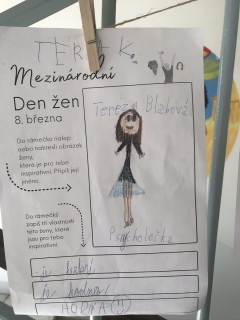 TEREK
Mezinárodní
Den žen
8. března
Do rámečku nalep
nebo nakresli obrázek
ženy,
která je pro tebe
inspirativní. Připiš její
jméno.
Tereza Blahová
Psycholožka
Do rámečků
zapiš tři vlastnosti
této ženy, které
jsou pro tebe
inspirativní.
je hodná
HODNÁ (!!)